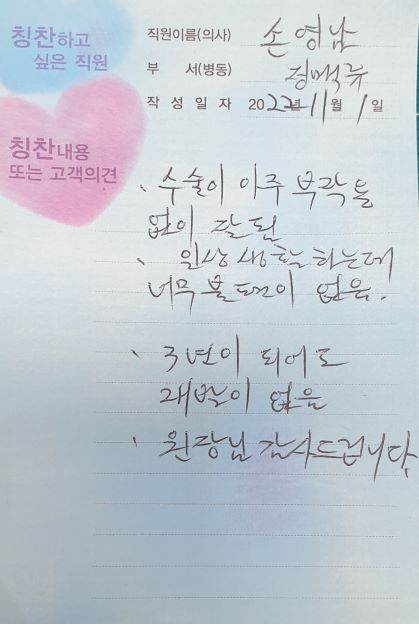 칭찬하고
싶은 직원
직원이름(의사) 손영남
부 서(병동) 정맥류
작성일자 2022년 11월 1일
칭찬내용
또는 고객의견
、 수술이 아주 부작용
없이 잘 됨
、 일상생활하는데
너무 불편이 없음!
、 3년이 되어도
재발이 없음
、 원장님 감사드립니다.